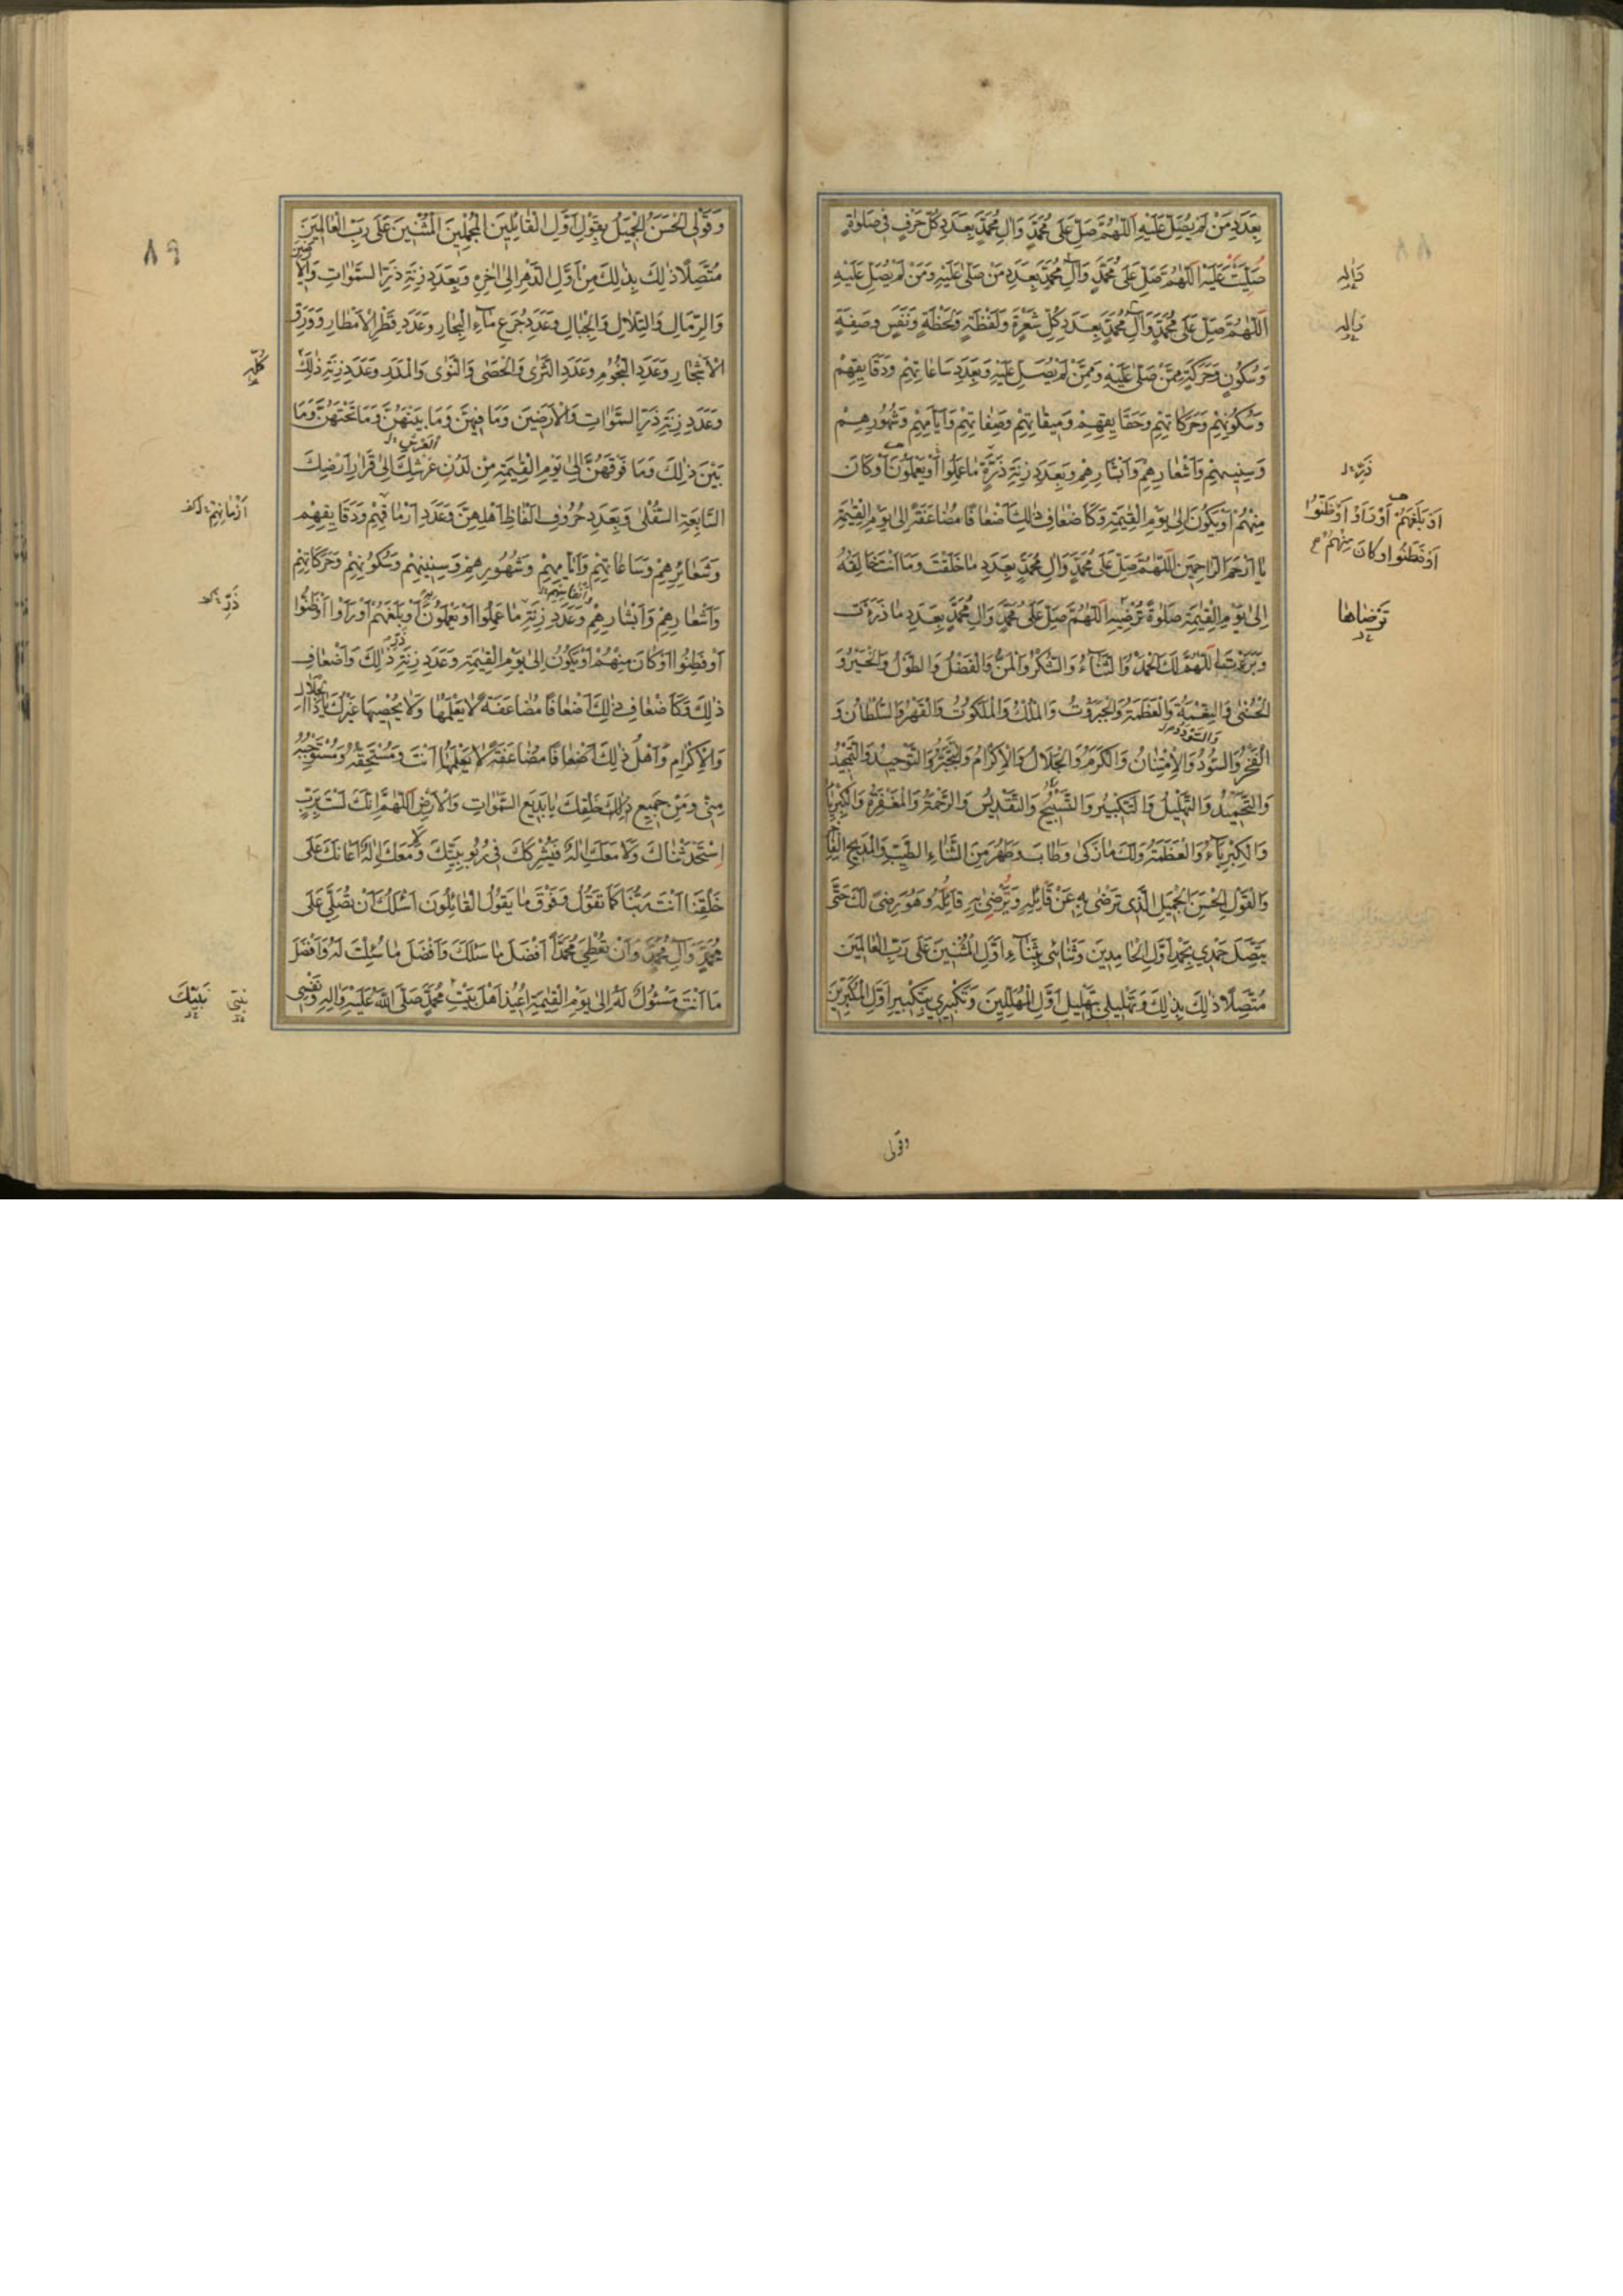 بِعَدَدِ مَنْ لَمْ يُصَلِّ عَلَيْهِ اَللّٰهُمَّ صَلِّ عَلىٰ مُحَمَّدٍ وَاٰلِ مُحَمَّدٍ بِعَدَدِ كُلِّ حَرْفٍ فِي صَلوٰةٍ
صُلِّيَتْ عَلَيْهِ اَللّٰهُمَّ صَلِّ عَلىٰ مُحَمَّدٍ وَاٰلِ مُحَمَّدٍ بِعَدَدِ مَنْ صَلّىٰ عَلَيْهِ وَمَنْ لَمْ يُصَلِّ عَلَيْهِ
اَللّٰهُمَّ صَلِّ عَلىٰ مُحَمَّدٍ وَاٰلِ مُحَمَّدٍ بِعَدَدِ كُلِّ شَعْرَةٍ وَلَفْظَةٍ وَلَحْظَةٍ وَنَفَسٍ وَصِفَةٍ
وَسُكُونٍ وَحَرَكَةٍ مِمَّنْ صَلّىٰ عَلَيْهِ وَمِمَّنْ لَمْ يُصَلِّ عَلَيْهِ وَبِعَدَدِ سَاعَاتِهِمْ وَدَقَايِقِهِمْ
وَسُكُونِهِمْ وَحَرَكَاتِهِمْ وَحَقَايِقِهِمْ وَمِيقَاتِهِمْ وَصِفَاتِهِمْ وَاَيَّامِهِمْ وَشُهُورِهِمْ
وَسِنِيهِمْ وَاَشْعَارِهِمْ وَاَبْشَارِهِمْ وَبِعَدَدِ زِنَةِ ذَرَّةٍ مَا عَمِلُوا اَوْ يَعْمَلُونَ اَوْ كَانَ
مِنْهُمْ اَوْ يَكُونُ اِلىٰ يَوْمِ الْقِيٰمَةِ وَكَاَضْعَافِ ذٰلِكَ اَضْعَافًا مُضَاعَفَةً اِلىٰ يَوْمِ الْقِيٰمَةِ
يَا اَرْحَمَ الرَّاحِمِينَ اَللّٰهُمَّ صَلِّ عَلىٰ مُحَمَّدٍ وَاٰلِ مُحَمَّدٍ بِعَدَدِ مَا خَلَقْتَ وَمَا اَنْتَ خَالِقُهُ
اِلىٰ يَوْمِ الْقِيٰمَةِ صَلوٰةً تُرْضِيهِ اَللّٰهُمَّ صَلِّ عَلىٰ مُحَمَّدٍ وَاٰلِ مُحَمَّدٍ بِعَدَدِ مَا ذَرَءْتَ
وَبَرَءْتَ اَللّٰهُمَّ لَكَ الْحَمْدُ وَالثَّنَاءُ وَالشُّكْرُ وَالْمَنُّ وَالْفَضْلُ وَالطَّوْلُ وَالْخَيْرُ وَ
الْحُسْنىٰ وَالنِّعْمَةُ وَالْعَظَمَةُ وَالْجَبَرُوتُ وَالْمُلْكُ وَالْمَلَكُوتُ وَالْقَهْرُ وَالسُّلْطَانُ وَ
الْفَخْرُ وَالسُّؤْدُدُ وَالْاِمْتِنَانُ وَالْكَرَمُ وَالْجَلَالُ وَالْاِكْرَامُ وَالتَّوْحِيدُ وَالتَّمْجِيدُ
وَالتَّحْمِيدُ وَالتَّهْلِيلُ وَالتَّكْبِيرُ وَالتَّسْبِيحُ وَالتَّقْدِيسُ وَالرَّحْمَةُ وَالْمَغْفِرَةُ
وَالْكِبْرِيَاءُ وَالْعَظَمَةُ وَلَكَ مَا زَكىٰ وَطَابَ وَطَهُرَ مِنَ الثَّنَاءِ الطَّيِّبِ وَالْمَدِيحِ الْفَاخِرِ
وَالْقَوْلِ الْحَسَنِ الْجَمِيلِ الَّذِي تَرْضىٰ بِهِ عَنْ قَائِلِهِ وَتُرْضِي بِهِ قَائِلَهُ وَهُوَ رِضىً لَكَ حَتّىٰ
يَتَّصِلَ حَمْدِي بِحَمْدِ اَوَّلِ الْحَامِدِينَ وَثَنَائِي بِثَنَاءِ اَوَّلِ الْمُثْنِينَ عَلىٰ رَبِّ الْعَالَمِينَ
مُتَّصِلًا ذٰلِكَ بِذٰلِكَ وَتَهْلِيلِي بِتَهْلِيلِ اَوَّلِ الْمُهَلِّلِينَ وَتَكْبِيرِي بِتَكْبِيرِ اَوَّلِ الْمُكَبِّرِينَ
وَاٰلِهِ
وَاٰلِهِ
اَوْ بَلَغَهُمْ اَوْ رَاَوْا اَوْ ظَنُّوا
اَوْ فَطَنُوا اَوْ كَانَ مِنْهُمْ
تَرْضَاهَا
وقولى
٨٩
وَقَوْلِيَ الْحَسَنُ الْجَمِيلُ بِقَوْلِ اَوَّلِ الْقَائِلِينَ الْمُجْمِلِينَ الْمُثْنِينَ عَلىٰ رَبِّ الْعَالَمِينَ
مُتَّصِلًا ذٰلِكَ بِذٰلِكَ مِنْ اَوَّلِ الدَّهْرِ اِلىٰ اٰخِرِهِ وَبِعَدَدِ زِنَةِ ذَرِّ السَّمٰوَاتِ وَالْاَرَضِينَ
وَالرِّمَالِ وَالتِّلَالِ وَالْجِبَالِ وَعَدَدِ جُرَعِ مَاءِ الْبِحَارِ وَعَدَدِ قَطْرِ الْاَمْطَارِ وَوَرَقِ
الْاَشْجَارِ وَعَدَدِ النُّجُومِ وَعَدَدِ الثَّرىٰ وَالْحَصىٰ وَالنَّوىٰ وَالْمَدَرِ وَعَدَدِ زِنَةِ ذٰلِكَ
وَعَدَدِ زِنَةِ ذَرِّ السَّمٰوَاتِ وَالْاَرَضِينَ وَمَا فِيهِنَّ وَمَا بَيْنَهُنَّ وَمَا تَحْتَهُنَّ وَمَا
بَيْنَ ذٰلِكَ وَمَا فَوْقَهُنَّ اِلىٰ يَوْمِ الْقِيٰمَةِ مِنْ لَدُنْ عَرْشِكَ اِلىٰ قَرَارِ اَرْضِكَ
السَّابِعَةِ السُّفْلىٰ وَبِعَدَدِ حُرُوفِ اَلْفَاظِ اَهْلِهِنَّ وَعَدَدِ اَرْمَاقِهِمْ وَدَقَايِقِهِمْ
وَشَعَائِرِهِمْ وَسَاعَاتِهِمْ وَاَيَّامِهِمْ وَشُهُورِهِمْ وَسِنِينِهِمْ وَسُكُونِهِمْ وَحَرَكَاتِهِمْ
وَاَشْعَارِهِمْ وَاَبْشَارِهِمْ وَعَدَدِ زِنَةِ مَا عَمِلُوا اَوْ يَعْمَلُونَ اَوْ بَلَغَهُمْ اَوْ رَاَوْا اَوْ ظَنُّوا
اَوْ فَطِنُوا اَوْ كَانَ مِنْهُمْ اَوْ يَكُونُ اِلىٰ يَوْمِ الْقِيٰمَةِ وَعَدَدِ زِنَةِ ذَرِّ ذٰلِكَ وَاَضْعَافِ
ذٰلِكَ وَكَاَضْعَافِ ذٰلِكَ اَضْعَافًا مُضَاعَفَةً لَا يَعْلَمُهَا وَلَا يُحْصِيهَا غَيْرُكَ يَا ذَا الْجَلَالِ
وَالْاِكْرَامِ وَاَهْلُ ذٰلِكَ اَضْعَافًا مُضَاعَفَةً لَا يَعْلَمُهَا اَنْتَ وَمُسْتَحِقُّهُ وَمُسْتَوْجِبُهُ
مِنِّي وَمِنْ جَمِيعِ ذٰلِكَ خَلْقِكَ يَا بَدِيعَ السَّمٰوَاتِ وَالْاَرْضِ اَللّٰهُمَّ اِنَّكَ لَسْتَ بِرَبٍّ
اِسْتَحْدَثْنَاكَ وَلَا مَعَكَ اِلٰهٌ فَيُشْرِكَكَ فِي رُبُوبِيَّتِكَ وَلَا مَعَكَ اِلٰهٌ اَعَانَكَ عَلىٰ
خَلْقِنَا اَنْتَ رَبُّنَا كَمَا تَقُولُ وَفَوْقَ مَا يَقُولُ الْقَائِلُونَ اَسْئَلُكَ اَنْ تُصَلِّيَ عَلىٰ
مُحَمَّدٍ وَاٰلِ مُحَمَّدٍ وَاَنْ تُعْطِيَ مُحَمَّدًا اَفْضَلَ مَا سَئَلَكَ وَاَفْضَلَ مَا سُئِلْتَ لَهُ وَاَفْضَلَ
مَا اَنْتَ مَسْئُولٌ لَهُ اِلىٰ يَوْمِ الْقِيٰمَةِ اُعِيذُ اَهْلَ بَيْتِ مُحَمَّدٍ صَلَّى اللّٰهُ عَلَيْهِ وَاٰلِهِ وَنَفْسِي
كُلِّهِ
اَزْمَانِهِمْ
ذَرِّ